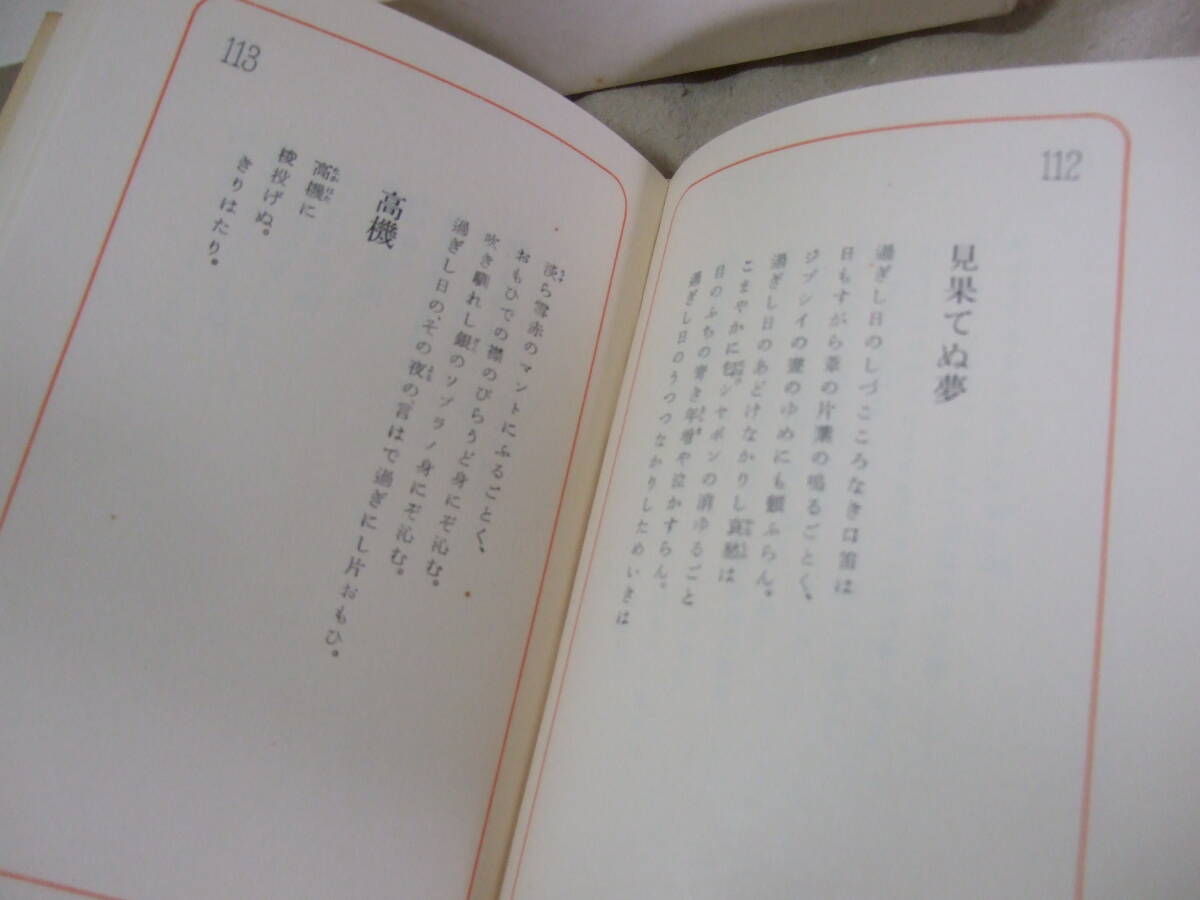 112
見果てぬ夢
過ぎし日のしづこころなき口笛は
日もすがら葦の片葉の鳴るごとく、
ジプシイの晝のゆめにも顫ふらん。
過ぎし日のあどけなかりし哀愁は
こまやかに匂シヤボンの消ゆるごと
目のふちの青き年増や泣かすらん。
過ぎし日のうつつなかりしためいきは
113
淡ら雪赤のマントにふるごとく、
おもひでの襟のびらうど身にぞ沁む。
吹き馴れし銀のソプラノ身にぞ沁む。
過ぎし日の、その夜の、言はで過ぎにし片おもひ。
高機
高機に
梭投げぬ。
きりはたり。